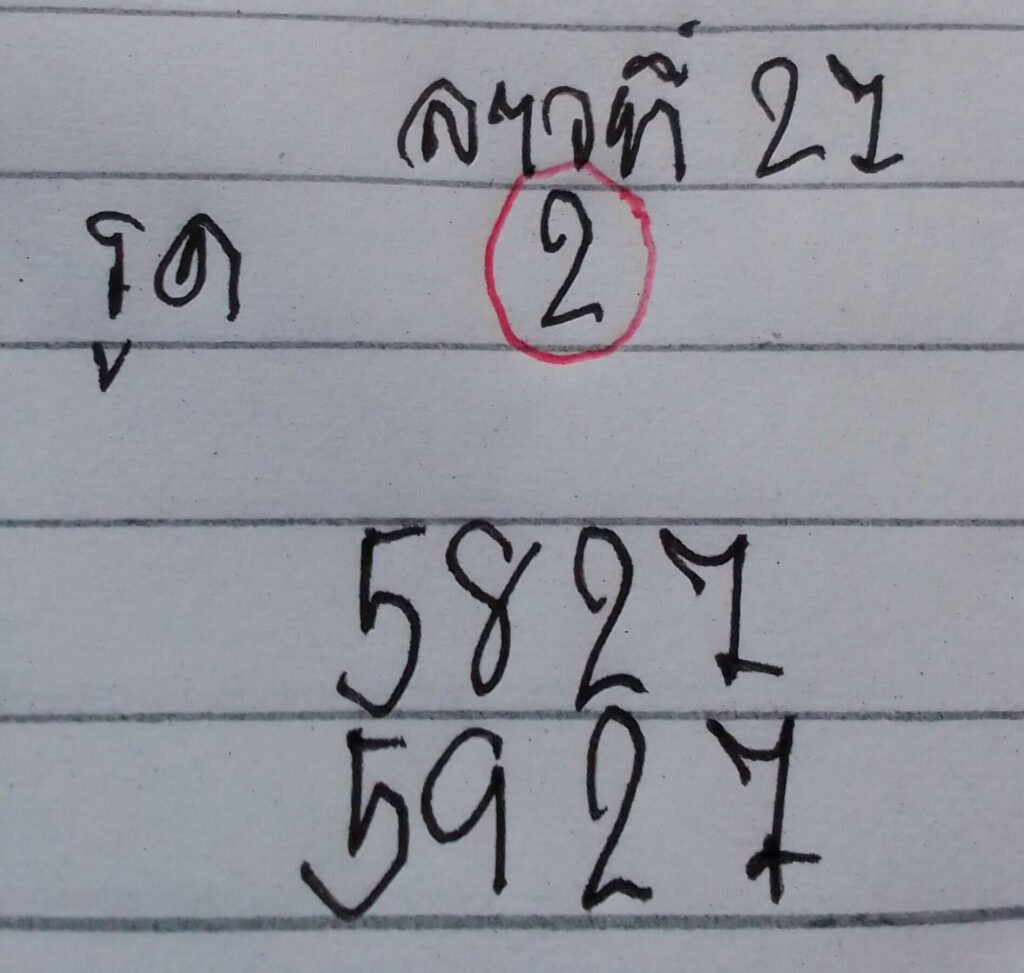 ลาวที่ 27
รูด 2
5827
5927